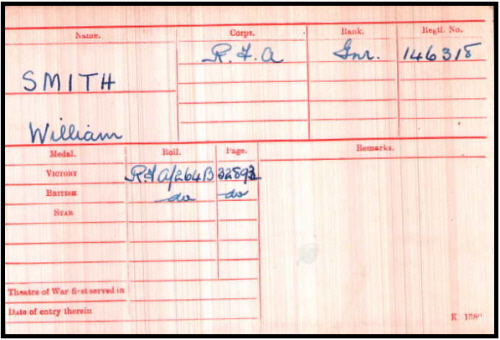 Name. Corps. Rank. Regtl. No.
SMITH R.F.A Gnr. 146318
William
Medal. Roll. Page. Remarks.
VICTORY RFA/264B
BRITISH do do
STAR
Theatre of War first served in
Date of entry therein